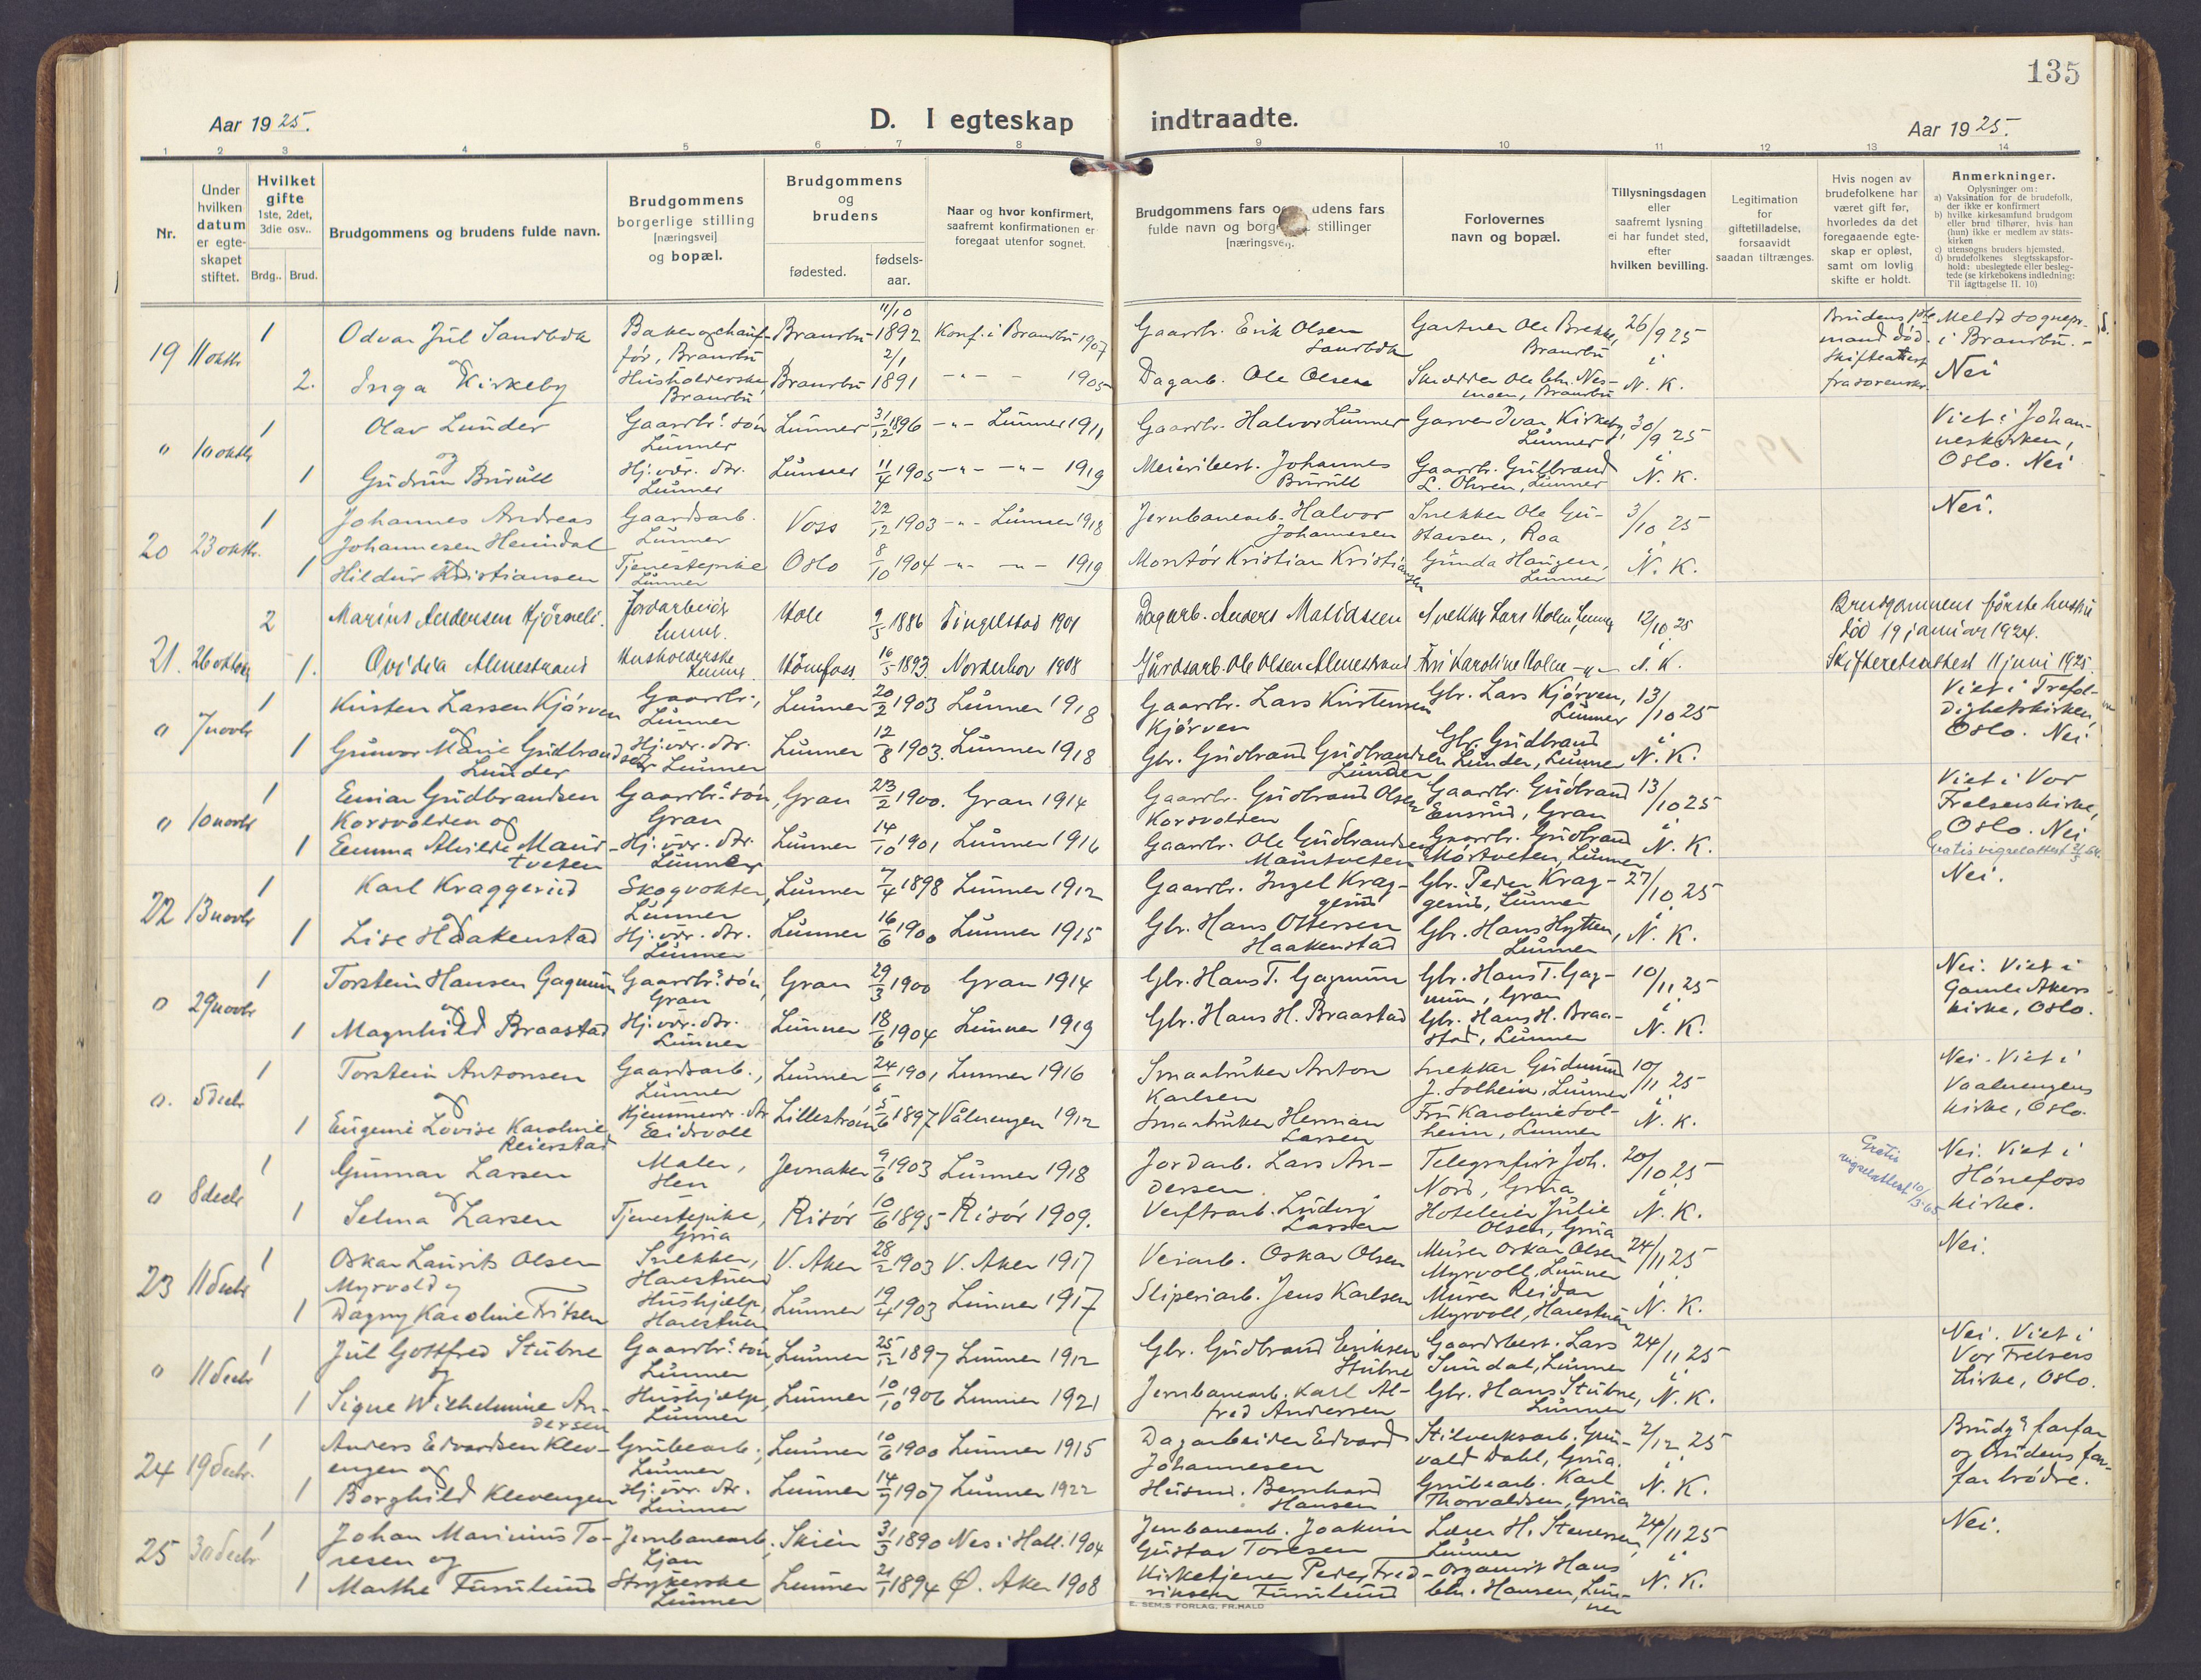 135
Aar 1925.
D. I egteskap indtraadte.
Aar 1925.
1 2 3 4 5 6 7 8 9 10 11 12 13 14
Nr.
Under hvilken datum er egteskapet stiftet.
Hvilket gifte 1ste, 2det, 3die osv..
Brdg.. Brud.
Brudgommens og brudens fulde navn.
Brudgommens borgerlige stilling [næringsvei] og bopæl.
Brudgommens og brudens
fødested.
fødsels-aar.
Naar og hvor konfirmert, saafremt konfirmationen er foregaat utenfor sognet.
Brudgommens fars og udens fars
fulde navn og borge stillinger
[næringsvei].
Forlovernes navn og bopæl.
Tillysningsdagen eller saafremt lysning ei har fundet sted, efter hvilken bevilling.
Legitimation for giftetilladelse, forsaavidt saadan tiltrænges.
Hvis nogen av brudefolkene har været gift før, hvorledes da det foregaaende egteskap er opløst, samt om lovlig skifte er holdt.
Anmerkninger.
Oplysninger om:
a) Vaksination for de brudefolk, der ikke er konfirmert
b) hvilke kirkesamfund brudgom eller brud tilhører, hvis han (hun) ikke er medlem av statskirken
c) utensogns bruders hjemsted.
d) brudefolkenes slegtsskapsforhold: ubeslegtede eller beslegtede (se kirkebokens indledning: Til iagttagelse II. 10)
19 11 oktbr 1 Odvar Jul Sandbæk Baker og chauffør, Brandbu Brandbu 11/10 1892 Konf. i Brandbu 1907 Gaardbr. Erik Olsen Sandbæk Gartner Ole Brekke, Brandbu 26/9 25
og
2. Inga Kirkeby Husholderske Brandbu Brandbu 2/1 1891 -"- - 1905 Dagarb. Ole Olsen i N. K. Nei
" 10 oktbr 1 Olav Lunder Gaardbr.s søn Lunner Lunner 31/12 1896 -"- Lunner 1911 Gaardbr. Halvor Lunner Garver Ivar Kirkeby, Lunner 30/9 25 Viet i Johanneskirken, Oslo. Nei
og
1 Gudrun Burull Hj. vær. dtr. Lunner Lunner 11/4 1905 -"- -"- 1919 Meieribest. Johannes Burull Gaardbr. Gulbrand L. Ohren, Lunner i N. K.
20 23 oktbr. 1 Johannes Andreas Johannesen Heimdal Gaardsarb. Lunner Voss 22/12 1903 -"- Lunner 1918 Jernbanearb. Halvor Johannesen Snekker Ole Gustavsen, Roa 3/10 25 Nei.
1 Hildur Kristiansen Tjenestepike Lunner Oslo 8/10 1904 -"- -"- 1919 Montør Kristian Kristiansen Gunda Haugen, Lunner i N. K.
21. 26 oktober 2 Marius Andersen Jordarbeider Lunner. Hole 9/5 1886 Tingelstad 1901 Dagarb. Anders Snekker Lars Holm, Lunner 12/10 25 Brudgommens første hustru død 19 januar 1924.
1. Ovidia Almestrand Husholderske Lunner. Hönefoss 16/5 1893. Norderhov 1908 Gårdsarb. Ole Olsen Almestrand Fru Karoline Holm -"- N. K. Skifteretsattest 11 juni 1925
" 7 novbr 1 Kristen Larsen Kjørven Gaardbr., Lunner Lunner 20/2 1903 Lunner 1918 Gaardbr. Lars Kristensen Kjørven Gbr. Lars Kjørven, Lunner 13/10 25 Viet i Trefoldighetskirken, Oslo. Nei
og
1 Gunvor Marie Gudbrandsen Lunder Hj. vær. dtr. Lunner Lunner 12/8 1903. Lunner 1918 Gbr. Gudbrand Gudbrandsen Lunder Gbr. Gudbrand Lunder, Lunner i N. K.
" 10 novbr 1 Einar Gudbrandsen Korsvolden og Gaardbr.s søn, Gran Gran 23/2 1900. Gran 1914 Gaardbr. Gudbrand Olsen Korsvolden Gaardbr. Gudbrand Ensrud, Gran 13/10 25 Viet i Vor Frelsers kirke, Oslo. Nei
1 Emma Alvilde Maurtveten Hj. vær. dtr. Lunner Lunner 14/10 1901 Lunner 1916 Gaardbr. Ole Gudbrandsen Maurtveten Gaardbr. Gudbrand Mørtveten, Lunner i N. K. Gratis vigselattest
22 13 novbr 1 Karl Kraggerud Skogvokter, Lunner Lunner 7/4 1898 Lunner 1912 Gaardbr. Ingel Kraggerud Gbr. Peder Kraggerud, Lunner 27/10 25 Nei.
og
1 Lise Haakenstad Hj. vær. dtr. Lunner Lunner 16/6 1900 Lunner 1915 Gbr. Hans Ottersen Haakenstad Gbr. Hans Hytten, Lunner i N. K.
" 29 novbr 1 Torstein Hansen Gagnum Gaardbr.s søn, Gran Gran 29/3 1900 Gran 1914 Gbr. Hans T. Gagnum Gbr. Hans T. Gagnum, Gran 10/11 25 Nei. Viet i Gamle Akers kirke, Oslo.
og
1 Magnhild Braastad Hj. vær. dtr. Lunner Lunner 18/6 1904 Lunner 1919 Gbr. Hans H. Braastad Gbr. Hans H. Braastad, Lunner i N. K.
". 5 decbr 1 Torstein Antonsen Gaardsarb., Lunner Lunner 24/6 1901 Lunner 1916 Smaabruker Anton Karlsen Snekker Gudmund J. Solheim, Lunner 10/11 25 Nei. Viet i Vaalerengens kirke, Oslo.
og
1 Eugenie Lovise Karoline Reierstad Hjemmevær. dtr Eidsvoll Lillestrøm 5/6 1897 Vålerengen 1912 Smaabruker Herman Larsen Fru Karoline Solheim, Lunner i N. K.
" 8 decbr 1 Gunnar Larsen Maler, Hen Jevnaker 9/6 1903 Lunner 1918 Jordarb. Lars Andersen. Telegrafist Joh. Nord, Grua 20/10 25 Gratis vigselattest 10/3 65 Nei. Viet i Hønefoss kirke.
og
1 Selma Larsen Tjenestepike, Grua Risør 10/6 1895 Risør 1909. Verftsarb. Ludvig Larsen Hoteleier Julie Olsen, Grua i N. K.
23 11 decbr 1 Oskar Laurits Olsen Myrvold og Snekker, Harestuen V. Aker 28/2 1903 V. Aker 1917 Veiarb. Oskar Olsen Murer Oskar Olsen Myrvoll, Lunner 24/11 25 Nei.
1 Dagny Karoline Fritsen Hushjelp, Harestuen Lunner 19/4 1903 Lunner 1917 Sliperiarb. Jens Karlsen Murer Reidar Myrvoll, Harestuen i N. K.
" 11 decbr 1 Jul Gottfred Stubne Gaardbr.s søn Lunner Lunner 25/12 1897 Lunner 1912 Gbr. Gudbrand Eriksen Stubne Gaardsbest. Lars Sundal, Lunner 24/11 25 Nei. Viet i Vor Frelsers kirke, Oslo.
og
1 Signe Wilhelmine Andersen Hushjelp, Lunner Lunner 10/10 1906 Lunner 1921 Jernbanearb. Karl Alfred Andersen Gbr. Hans Stubne, Lunner i N. K.
24 19 decbr. 1 Anders Edvardsen Klevengen og Grubearb., Lunner Lunner 10/6 1900 Lunner 1915 Dagarbeider Edvard Johannesen Stilverksarb. Gunvald Dahl, Grua. 2/12 25 Brudg.s farfar og brudens farfar brødre.
1 Borghild Klevengen Hj. vær. dtr. Lunner Lunner 14/7 1907 Lunner 1922 Husmd. Bernhard Hansen Grubearb. Karl Thorvaldsen, Grua i N. K.
25 30 decbr 1 Johan Marinius Toresen og Jernbanearb., Ljan Skien 31/3 1890 Nes i Hall. 1904 Jernbanearb. Joakim Gustav Toresen Lærer H. Stenersen, Lunner 24/11 25 Nei.
1 Marthe Furulund Strykerske Lunner Lunner 21/1 1894 Ø. Aker 1908 Kirketjener Peder Fredriksen Furulund Organist Hans Chr. Hansen, Lunner i N. K.
E. SEM.S FORLAG, FR.HALD